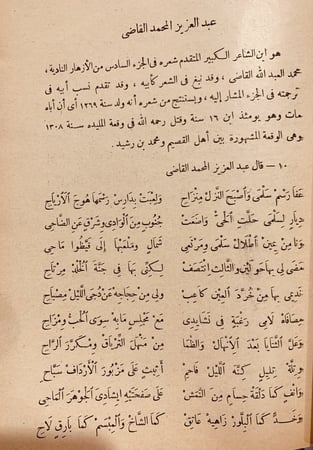 عبد العزيز المحمد القاضي
هو ابن الشاعر الكبير المتقدم شعره في الجزء السادس من الأزهار النادية ،
محمد العبد الله القاضي ، وقد نبغ في الشعر كأبيه ، وقد تقدم نسب أبيه في
ترجمته في الجزء المشار إليه ، ويستنتج من شعره أنه ولد سنة ١٢٦٩ أي أن أباه
مات وهو يومئذ ابن ١٦ سنة وقتل رحمه الله في وقعة المليده سنة ١٣٠٨
وهي الوقعة المشهورة بين أهل القصيم ومحمد بن رشيد .
١٠ – قال عبد العزيز المحمد القاضي
عَفَا رَسْم سَلْمَى وَأَصْبَحَ النَّزْل مِنْزَاحِ وَلِعِبَتْ بِدَارِسْ رَسْمِهَا هُوجَ الْأَرْيَاحِ
دِيَارٍ لِسَلْمَى حَلَّتَ الْحَيّ وَاضْعَنَتْ جَنُوبٍ مِنَ الْوَادِي وَشَرْقٍ عَنِ الضَّاحِي
وَنَا مِنْ يِمِينْ أَطْلَالْ سَلْمَى وَمَرْبَعِي شَمَالٍ وَمَلْعَبْهَا إِلَى قَيَّظُوا مَاحِي
مَضَى لِي بِهَا حَوْلَيْن وَالثَّالِث انْتِصَفْ لِكِنِّي بَهَا فِي جَنَّةَ الْخُلْدْ مِرْتَاحِ
نَدِيمِي بِهَا مِنْ خُرَّدَ الْعِينْ كَاعِبْ وِلِي مِنْ حَجَاجِهْ عَنْ دُجَى اللَّيْل مِصْبَاحِ
رَغْبَةٍ فِي نَشَايدِي مَعَ مَجْلِسٍ مَابِهْ سِوَى الْحُبْ وَمْزَاحِ
وَعَلّ الثَّنَايَا بَعْد الْأَنْهَال وَالظَّمَا مِنْ مَنْهَلَ التِّرْيَاقْ وَمْكَرَّرَ الرَّاحِ
وِتَلَّهْ بِتَلِيلٍ كِنَّهَ اللَّيْل فَاحِمٍ عَلَى مَزْبُورَ الْأَرْدَافْ سَبَّاحِ
وَانْفٍ كَمَا ذَلْقَةْ حِسَامٍ مِنَ النَّمَشْ عَلَى صَفْحَتِيهْ الْجَوْهَرَ الْمَاحِي
وَخَدٍّ كَمَا الْبِلَّوْر زَاهِيهْ عَاتِقْ كَمَا الشَّاخْ وَالْمِبْسَمْ كَمَا بَارِقٍ لَاحِ